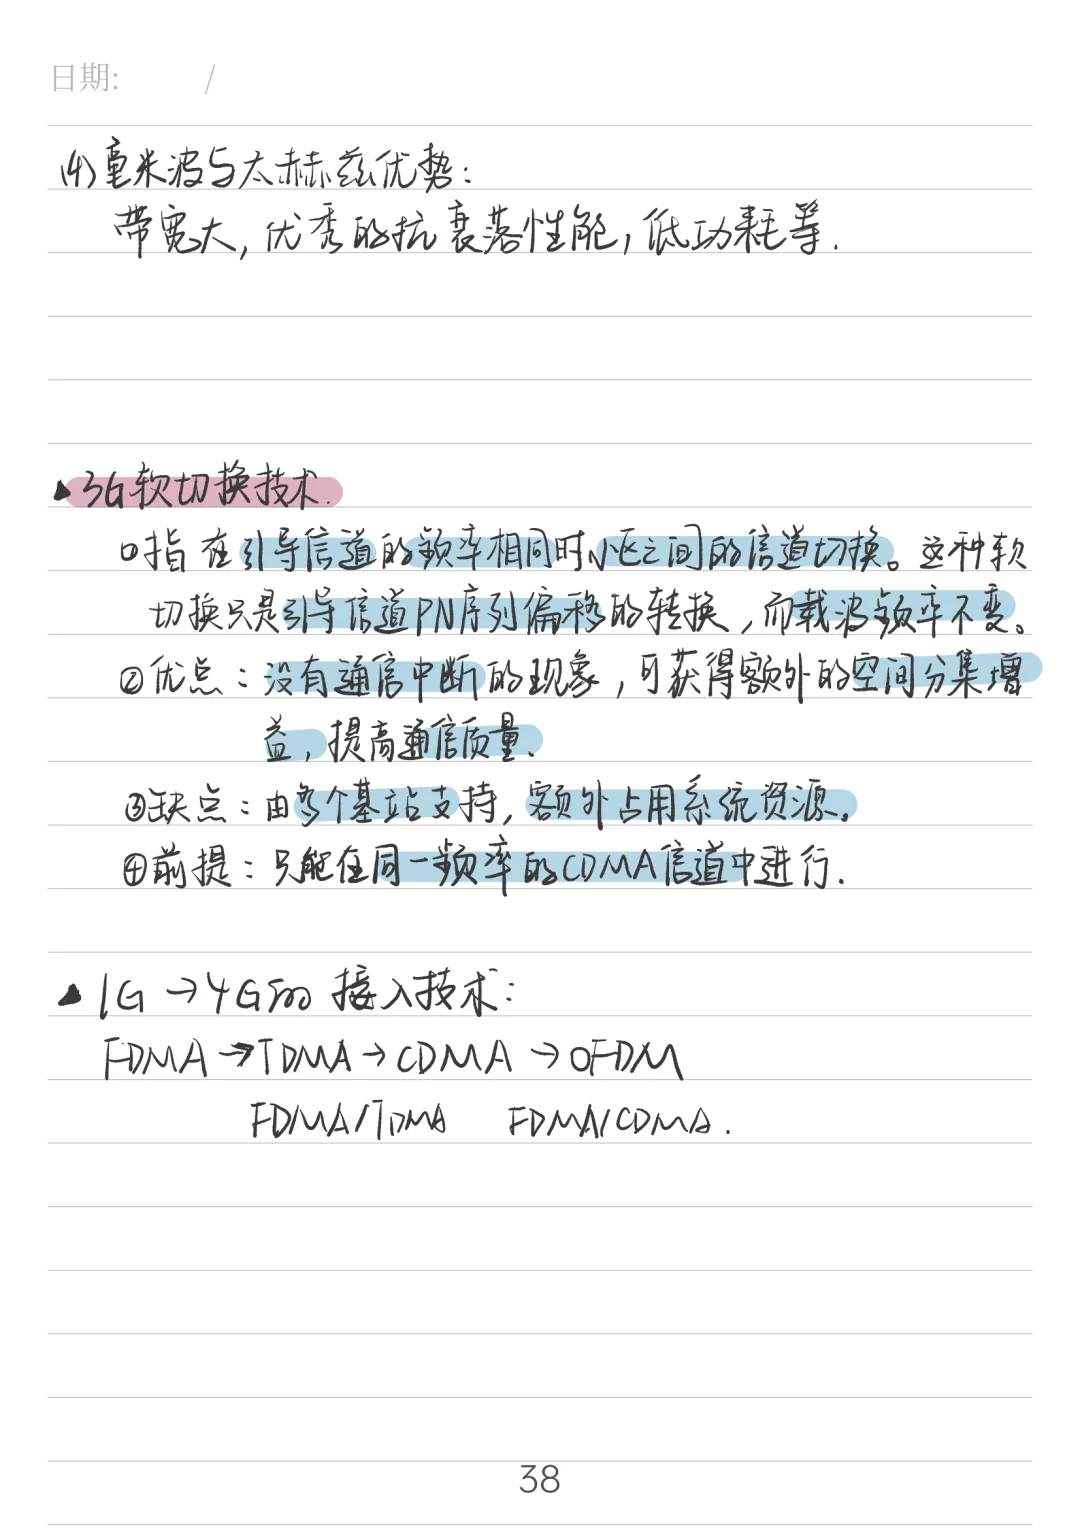 日期: /
(4)毫米波与太赫兹优势:
带宽大,优秀的抗衰落性能,低功耗等.
▲3G软切换技术.
①指在引导信道的频率相同时小区之间的信道切换。这种软
切换只是引导信道PN序列偏移的转换,而载波频率不变。
②优点:没有通信中断的现象,可获得额外的空间分集增
益,提高通信质量.
③缺点:由多个基站支持,额外占用系统资源。
④前提:只能在同一频率的CDMA信道中进行.
▲1G→4G的接入技术:
FDMA→TDMA→CDMA→OFDM
FDMA/TDMA FDMA/CDMA.
38